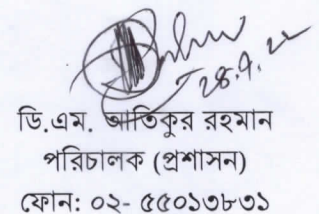 28.9.22
ডি.এম. আতিকুর রহমান
পরিচালক (প্রশাসন)
ফোন: ০২- ৫৫০১৩৮৩১